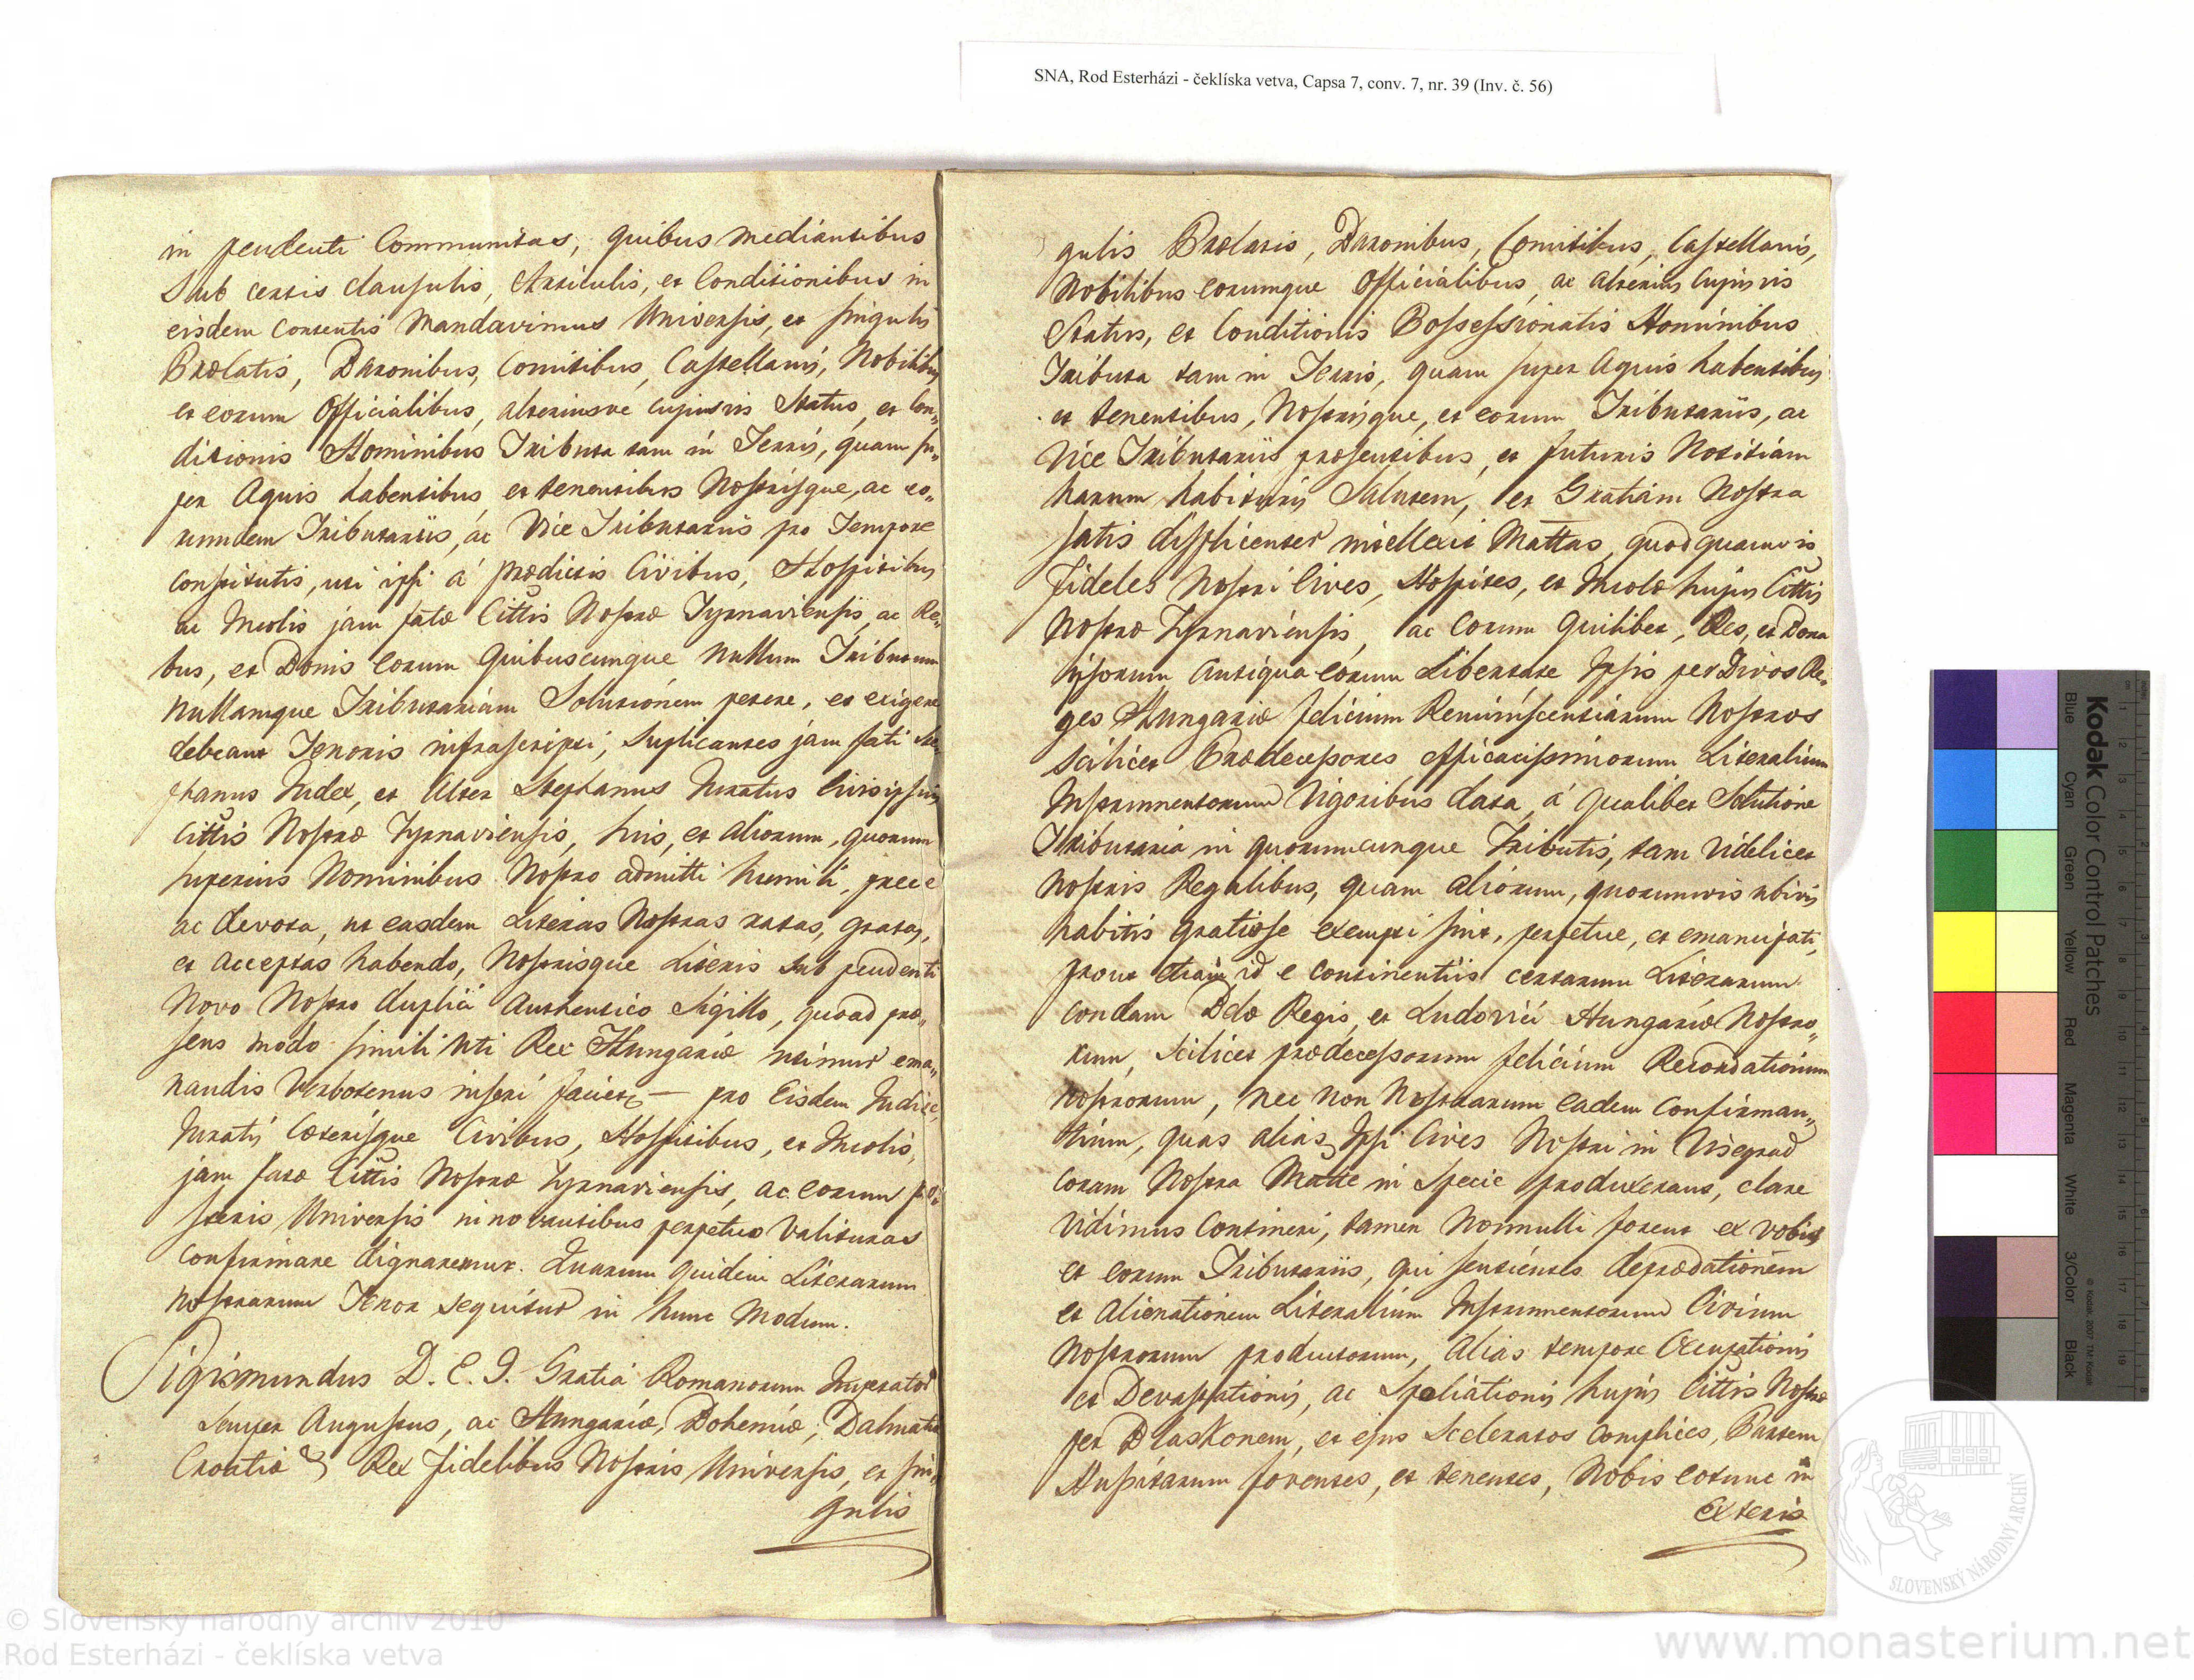 SNA, Rod Esterházi - čeklíska vetva, Capsa 7, conv. 7, nr. 39 (Inv. č. 56)
in pendenti Communitas, quibus mediantibus
Sub certis clausulis, Articulis, et Conditionibus in
eisdem contentis Mandavimus Universis, et singulis
Prælatis, Baronibus, Comitibus, Castellanis, Nobilibus
et eorum Officialibus, alteriusve cujusvis Status, et Con„
ditionis Hominibus Tributa tam in Terris, quam su„
per Aquis habentibus, et tenentibus Nostrisque, ac eo„
rumdem Tributariis, ac Vice Tributariis pro Tempore
constitutis, uti ipsi á prædictis Civibus, Hospitibus
ac Incolis jam fatæ Cittis Nostræ Tyrnaviensis, ac Re„
bus, et Bonis eorum Quibuscunque Nullum Tributum
Nullamque Tributariam Solutionem petere, et exigere
debeant Tenoris infrascripti; Suplicantes jam fati Ste„
phanus Judex, et Alter Stephanus Juratus Civis ipsius
Cittis Nostræ Tyrnaviensis, suis, et aliorum, quorum
superius Nominibus Nostro admitti humili, prece
ac devota, ut easdem Literas Nostras ratas, gratas,
et acceptas habendo, Nostrisque Literis sub pendenti
Novo Nostro duplici Authentico Sigillo, quoad præ„
sens modo simili uti Rex Hungariæ utimur ema„
nandis Verbotenus inseri facientes — pro Eisdem Judice,
Juratis Cæterisque Civibus, Hospitibus, et Incolis,
jam fatæ Cittis Nostræ Tyrnaviensis, ac eorum po„
steris Universis innovantibus perpetuo Valituras
confirmare dignaremur. Quarum quidem Literarum
Nostrarum Tenor sequitur in hunc Modum.
Sigismundus D. C. I. Gratia Romanorum Imperator
Semper Augustus, ac Hungariæ, Bohemiæ, Dalmatiæ
Croatiæ & Rex fidelibus Nostris Universis, et sin„
gulis
gulis Prælatis, Baronibus, Comitibus, Castellanis,
Nobilibus eorumque Officialibus, ac alterius cujusvis
Status, et Conditionis Possessionatis Hominibus
Tributa tam in Terris, quam super Aquis habentibus
et tenentibus, Nostrisque, et eorum Tributariis, ac
Vice Tributariis præsentibus, et futuris Notitiam
harum habituris Salutem, et Gratiam Nostra
satis displicenter intellexit Mattas, quod quamvis
fideles Nostri Cives, Hospites, et Incolæ hujus Cittis
Nostræ Tyrnaviensis, ac eorum Quilibet, Res, et Bona
ipsorum Antiqua eorum Libertate Ipsis per Divos Re„
ges Hungariæ felicium Reminiscentiarum Nostros
scilicet Prædecessores efficacissimorum Literalium
Instrumentorum Vigoribus data, á Qualibet Solutione
Tributaria in quorumcunque Tributis, tam videlicet
Nostris Regalibus, quam aliorum, quorumvis ubivis
habitis gratiose exempti sint, perpetue, et emancipati,
prout etiam id e continentiis certarum Literarum
condam Belæ Regis, et Ludovici Hungariæ Nostro„
rum, scilicet prædecessorum felicium Recordationum
Nostrorum, nec non Nostrarum eadem Confirman„
tium, quas alias Ipsi Cives Nostri in Visegrad
coram Nostra Matte in Specie produxerant, clare
vidimus Contineri, tamen Nonnulli forent ex vobis
et eorum Tributariis, qui sentientes deprædationem
et alienationem Literalium Instrumentorum Civium
Nostrorum productorum, Alias tempore Occupationis
et Devastationis, ac Spoliationis hujus Cittis Nostræ
per Blaskonem, et ejus Sceleratos complices, Partem
Hussitarum foventes, et tenentes, Nobis eotunc in
exteris
Kodak Color Control Patches
Blue Cyan Green Yellow Red Magenta White 3/Color Black
© Kodak 2007 TM Kodak
SLOVENSKÝ NÁRODNÝ ARCHÍV
© Slovenský národný archív 2010
Rod Esterházi - čeklíska vetva
www.monasterium.net